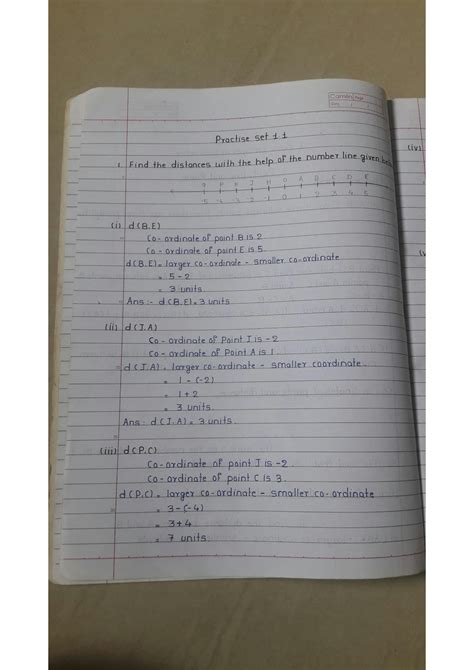 Practise set 1.1
1. Find the distances with the help of the number line given
Q P K J H O A B C D E
-5 -4 -3 -2 -1 0 1 2 3 4 5
(i) d(B.E)
Co-ordinate of point B is 2.
Co-ordinate of point E is 5.
d(B.E)= larger co-ordinate - smaller co-ordinate
= 5-2
= 3 units.
Ans:- d(B.E)= 3 units
(ii) d(J.A)
Co-ordinate of Point J is -2
Co-ordinate of Point A is 1.
d(J.A)= larger co-ordinate - smaller coordinate.
= 1-(-2)
= 1+2
= 3 units.
Ans:- d(J.A)= 3 units.
(iii) d(P.C)
Co-ordinate of point J is -2.
Co-ordinate of point C is 3.
d(P.C)= larger co-ordinate - smaller co-ordinate
= 3-(-4)
= 3+4
= 7 units.
(iv)